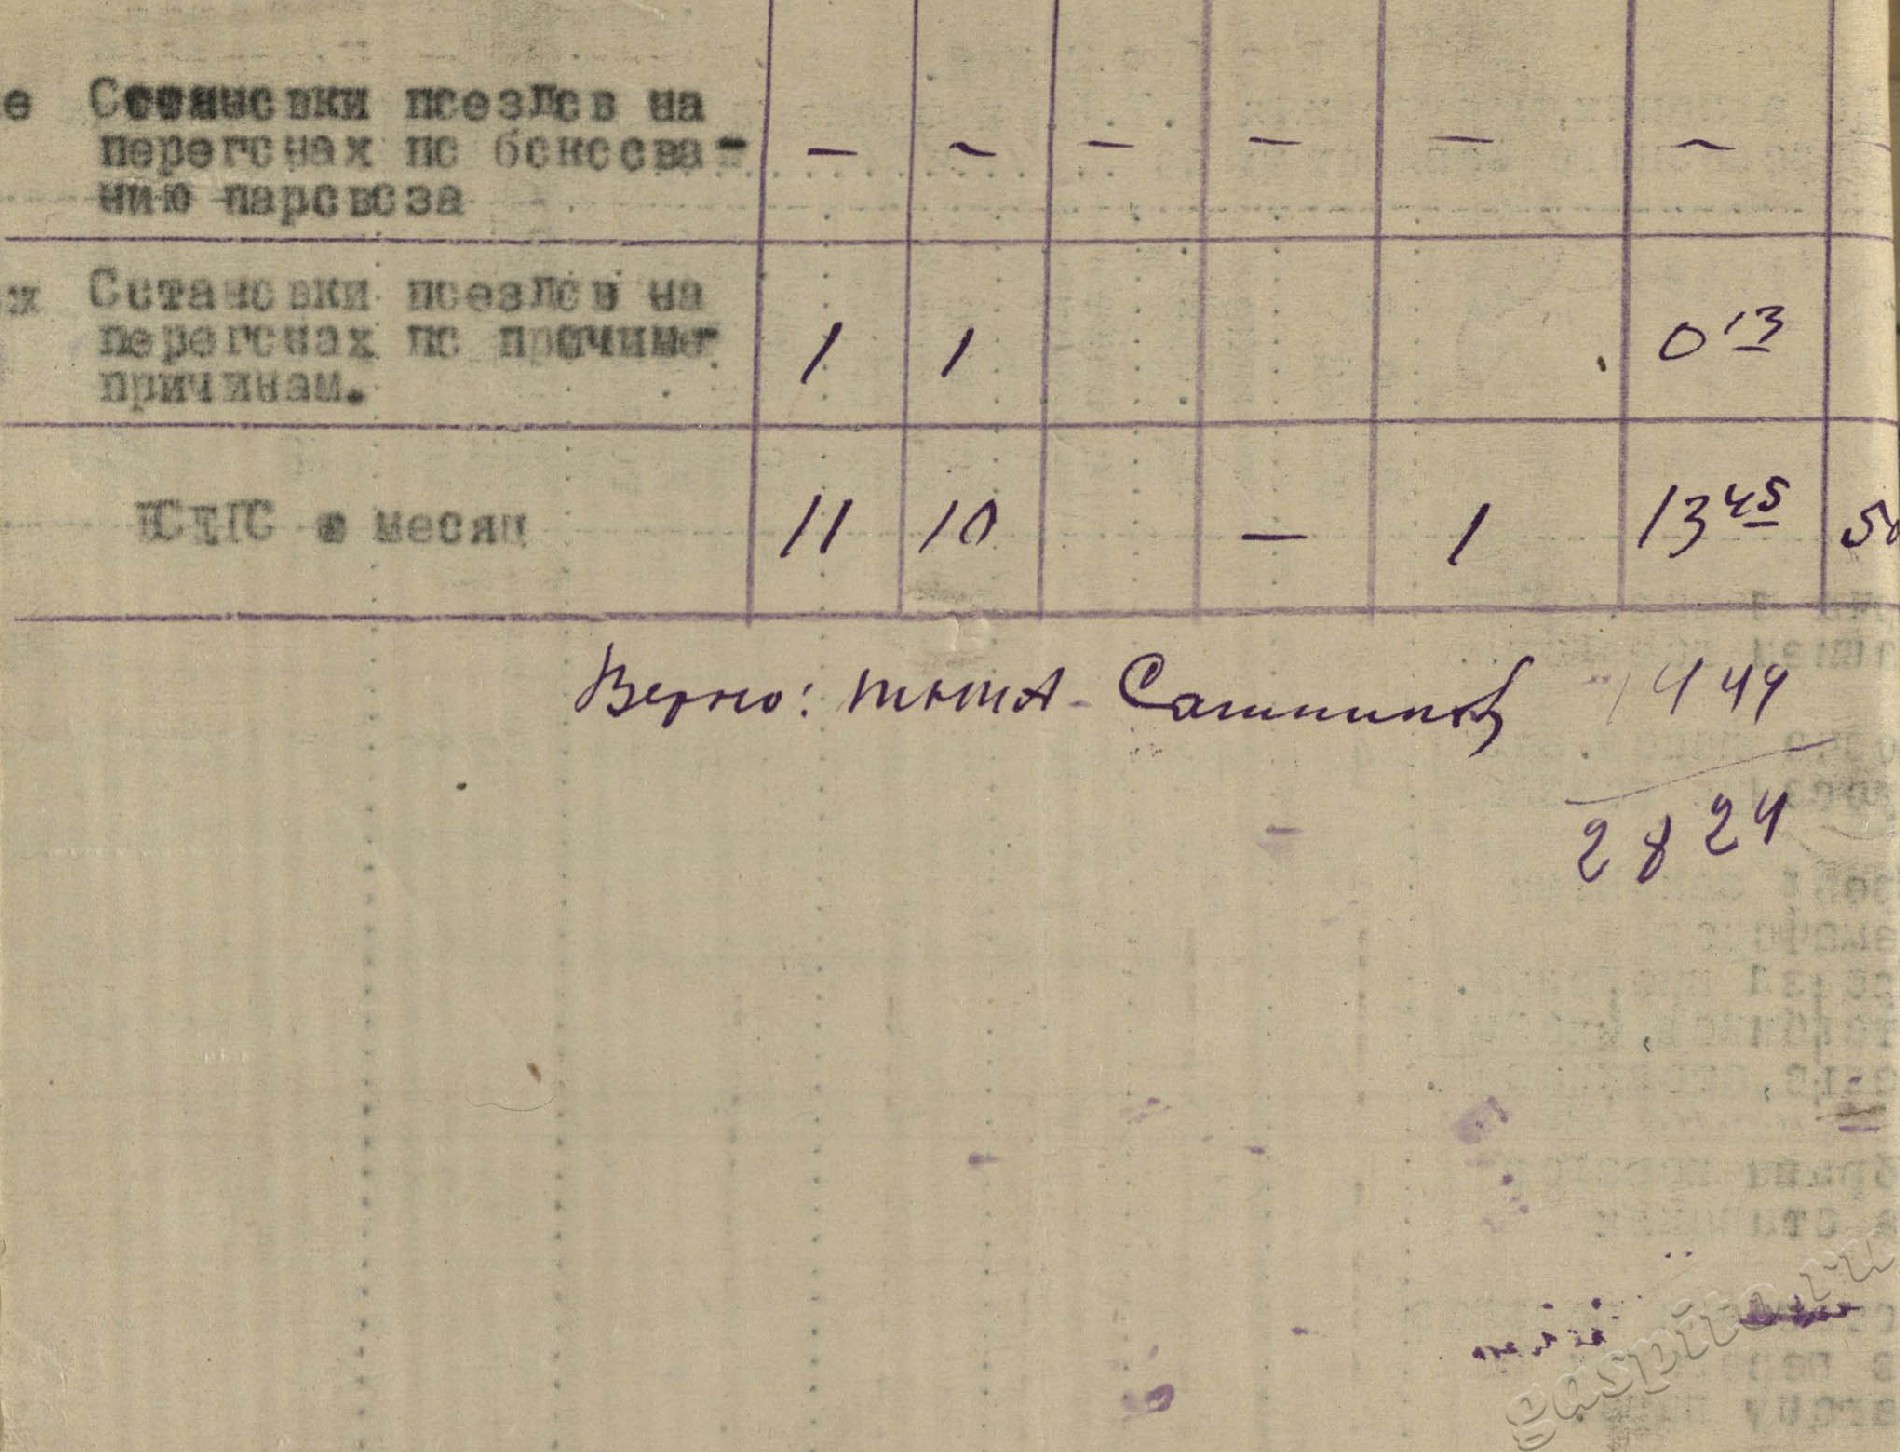 е Остановки поездов на
перегонах по боксова-
нию паровоза
— ~ — — — ~
ж Остановки поездов на
перегонах по прочим
причинам.
1 1 0 13
месяц
11 10 — 1 13 45
Верно:
1449
2824
gaspito.ru